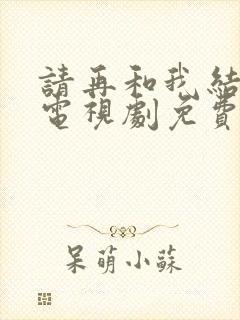 請再和我結
電視劇免費
呆萌小蘇